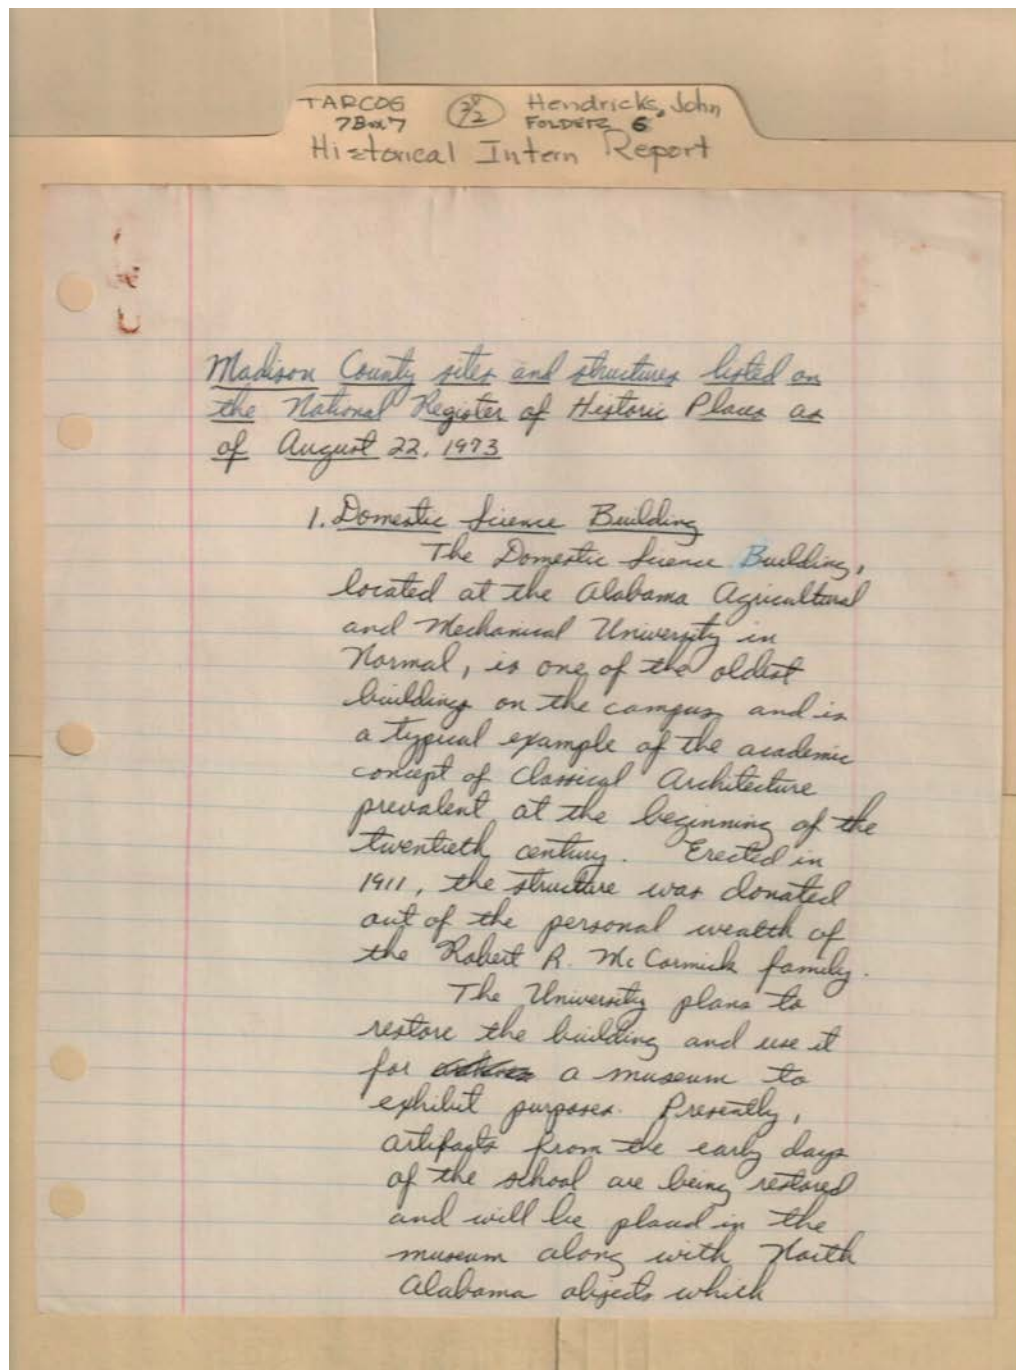 TARCOG Hendricks, John
7Box7 FOLDER 6
Historical Intern Report
Madison County sites and structures listed on
the National Register of Historic Places as
of August 22, 1973
1. Domestic Science Building
The Domestic Science Building,
located at the Alabama Agricultural
and Mechanical University in
Normal, is one of the oldest
buildings on the campus and is
a typical example of the academic
concept of Classical Architecture
prevalent at the beginning of the
twentieth century. Erected in
1911, the structure was donated
out of the personal wealth of
the Robert R. McCormick family.
The University plans to
restore the building and use it
for a museum to
exhibit purposes. Presently,
artifacts from the early days
of the school are being restored
and will be placed in the
museum along with North
Alabama objects which